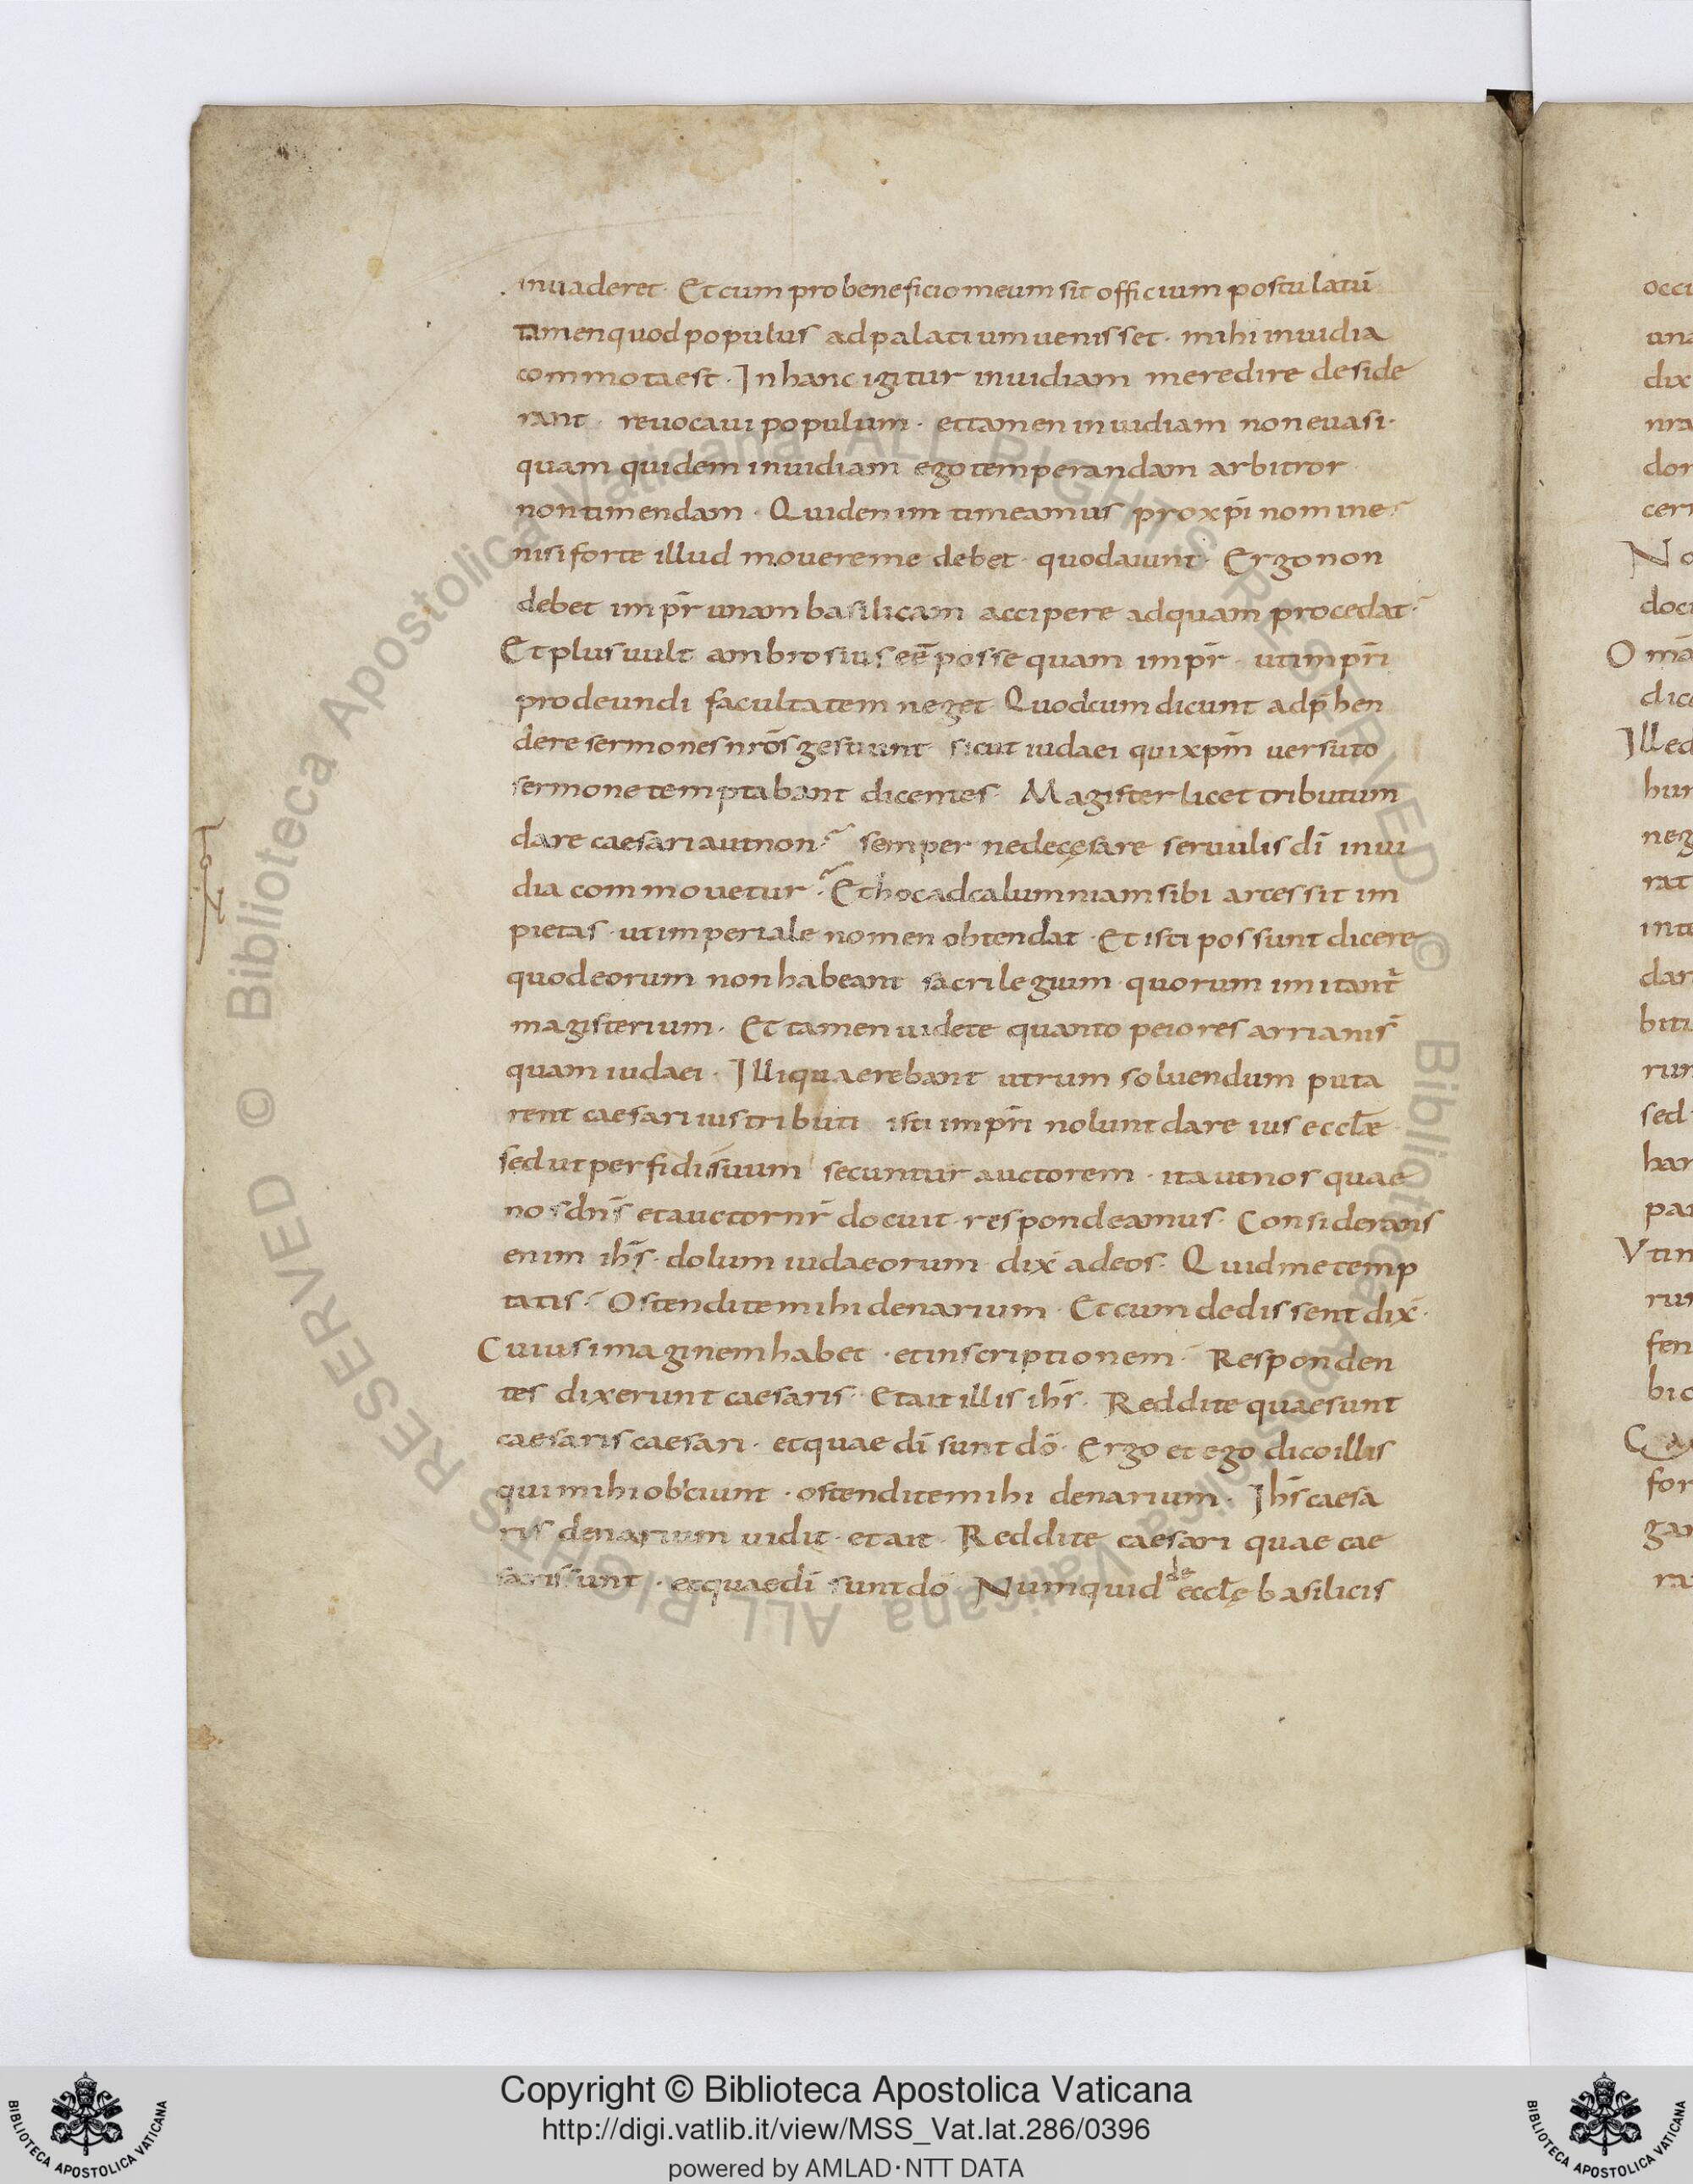 inuaderet· Et cum pro beneficio meum sit officium postulatū
tamen quod populus ad palatium uenisset· mihi inuidia
commota est· In hanc igitur inuidiam me redire deside
rant· reuocaui populum· et tamen inuidiam non euasi·
quam quidem inuidiam ego temperandam arbitror
non timendam· Quid enim timeamus pro xp̄i nomine?
nisi forte illud mouere me debet· quod aiunt· Ergo non
debet imp̄r unam basilicam accipere ad quam procedat?
Et plus uult ambrosius eē̄ posse quam imp̄r· ut imp̄ri
prodeundi facultatem neget· Quod cum dicunt adp̄hen
dere sermones nr̄os gestiunt sicut iudaei qui xp̄m uersuto
sermone temptabant dicentes· Magister licet tributum
dare caesari aut non? semper ne de cęsare seruulis dī inui
dia commouetur? Et hoc ad calumniam sibi artessit im
pietas· ut imperiale nomen obtendat· Et isti possunt dicere
quod eorum non habeant sacrilegium· quorum imitant̄
magisterium· Et tamen uidete quanto peiores arrianis̄
quam iudaei· Illi quaerebant utrum soluendum puta
rent caesari ius tributi isti imp̄ri nolunt dare ius eccłae·
sed ut perfidi suum secuntur auctorem· ita ut nos quae
nos dn̄s et auctor nr̄ docuit· respondeamus· Considerans
enim ih̄s· dolum iudaeorum dix̄ ad eos· Quid me temp
tatis? Ostendite mihi denarium· Et cum dedissent dix̄·
Cuius imaginem habet· et inscriptionem? Responden
tes dixerunt caesaris· Et ait illis ih̄s· Reddite quae sunt
caesaris caesari· et quae dī sunt dō· Ergo et ego dico illis
qui mihi obiciunt· ostendite mihi denarium· Ih̄s caesa
ris denarium uidit· et ait· Reddite caesari quae cae
saris sunt· et quae dī sunt dō Numquid de eccłę basilicis
Copyright © Biblioteca Apostolica Vaticana
http://digi.vatlib.it/view/MSS_Vat.lat.286/0396
powered by AMLAD·NTT DATA
© Biblioteca Apostolica Vaticana ALL RIGHTS RESERVED © Biblioteca Apostolica Vaticana ALL RIGHTS RESERVED
BIBLIOTECA APOSTOLICA VATICANA
BIBLIOTECA APOSTOLICA VATICANA